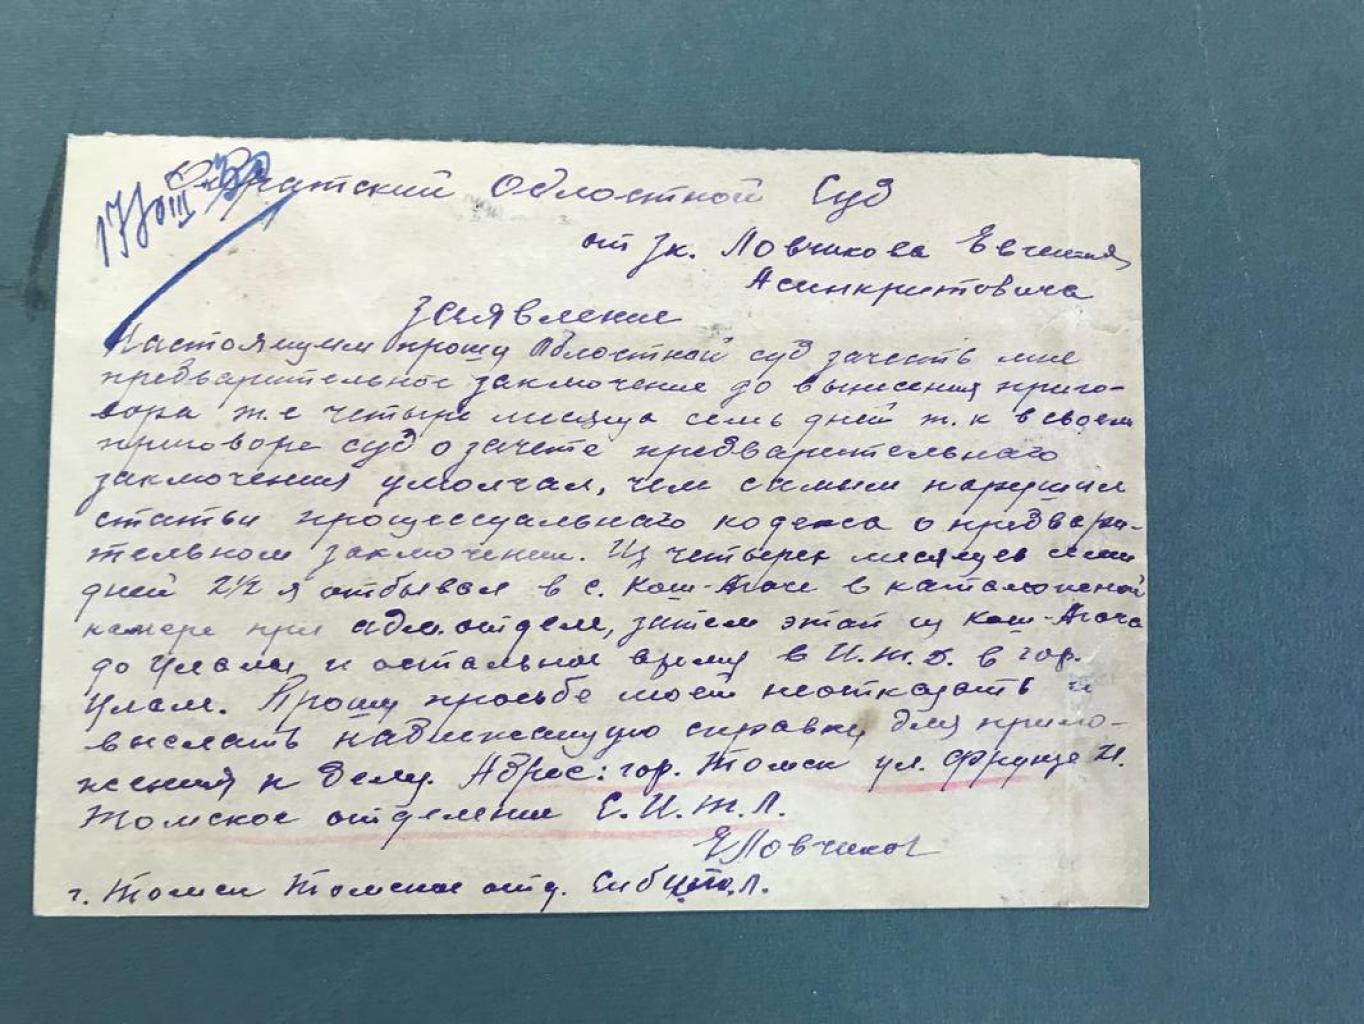 Ойратский Областной Суд
от зк. Ловчикова Евгения
Асинкритовича
Заявление
Настоящим прошу Областной суд зачесть мне
предварительное заключение до вынесения приго-
вора т.е четыре месяца семь дней т.к в своем
приговоре суд о зачете предварительного
заключения умолчал, чем самым нарушил
статьи процессуального кодекса о предвари-
тельном заключении. Из четырех месяцев семи
дней 2½ я отбывал в с. Кош-Агаче в каталажной
камере при адм.отделе, затем этап из Кош-Агача
до Улалы и остальное время в И.Т.Д. в гор.
Улале. Прошу просьбе моей неотказать и
выслать надлежащую справку для прило-
жения к делу. Адрес: гор. Томск ул. Фрунзе И.
Томское отделение С.И.Т.Л.
ЕЛовчиков
г. Томск Томское отд. Сибит.Л.